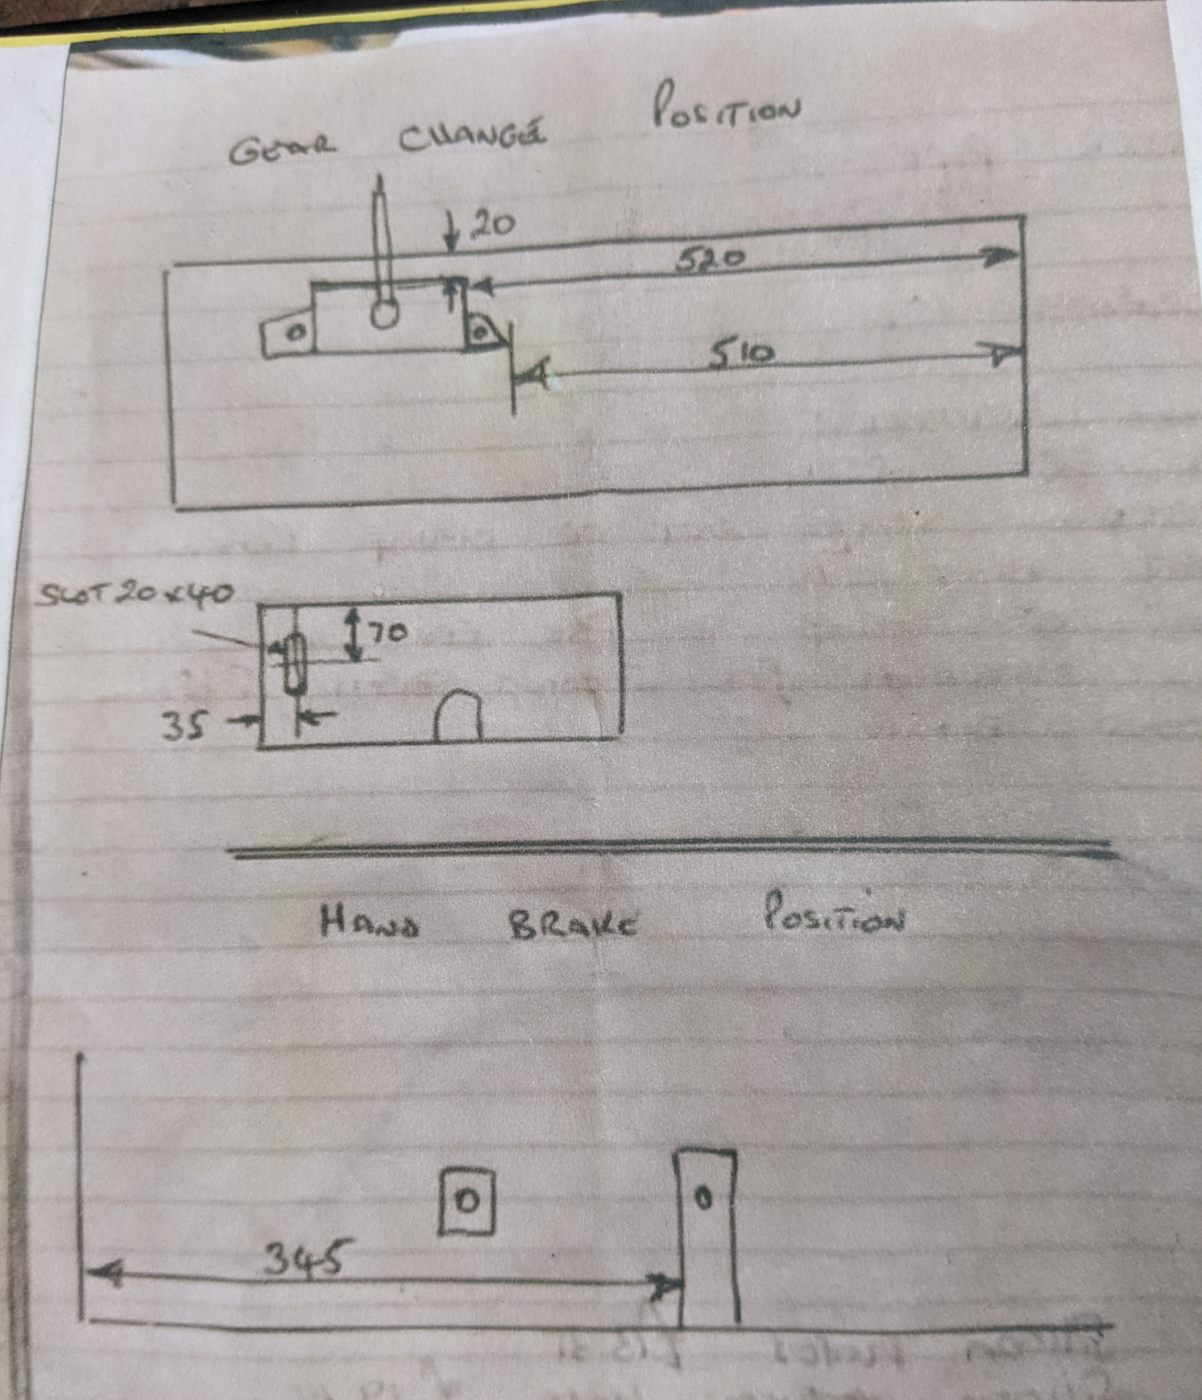 GEAR CHANGE POSITION
20
520
510
SLOT 20 x 40
70
35
HAND BRAKE POSITION
345